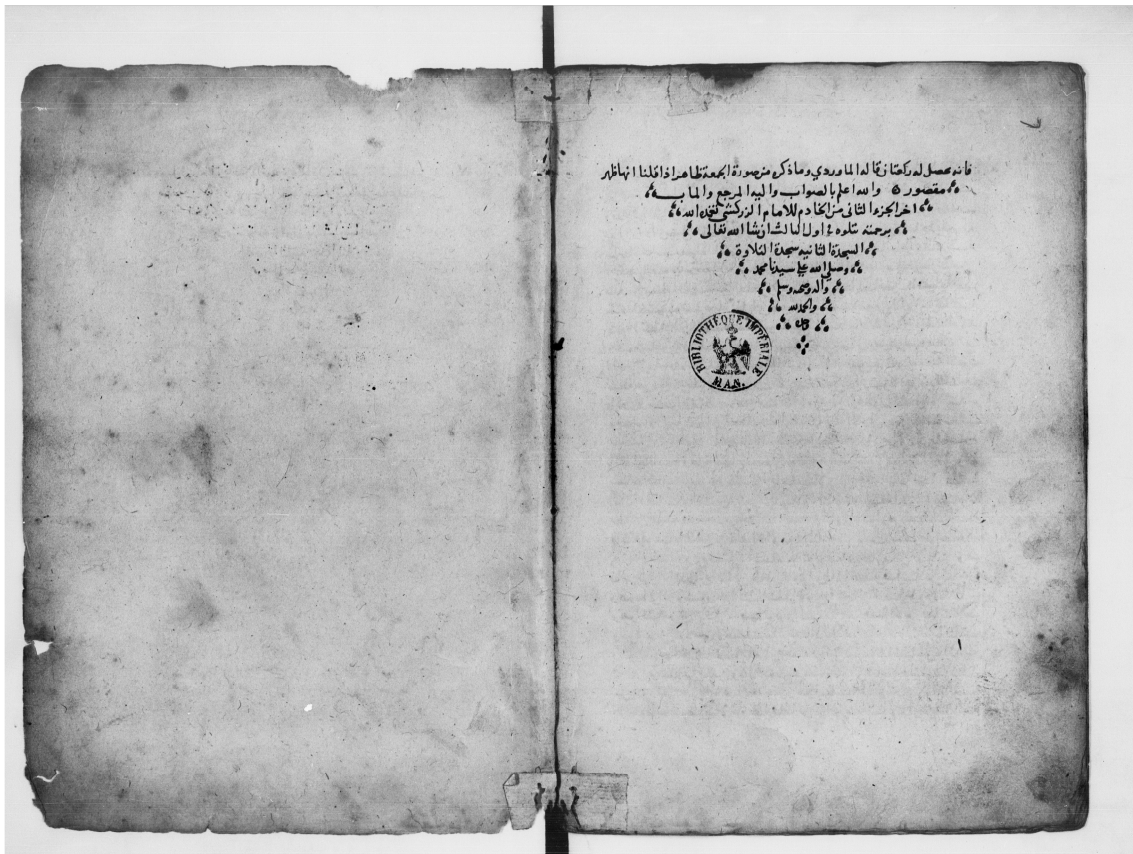 فانه يحصل له ركعتان قاله الماوردي وما ذكره من صورة الجمعة ظاهر اذا قلنا انها ظهر
مقصورة والله اعلم بالصواب واليه المرجع والماب
اخر الجزء الثاني من الخادم للامام الزركشي تغمده الله
برحمته يتلوه في اول الثالث ان شا الله تعالى
السجدة الثانيه سجدة التلاوة
وصلى الله على سيدنا محمد
واله وصحبه وسلم
والحمد لله
BIBLIOTHÈQUE IMPÉRIALE
MAN.